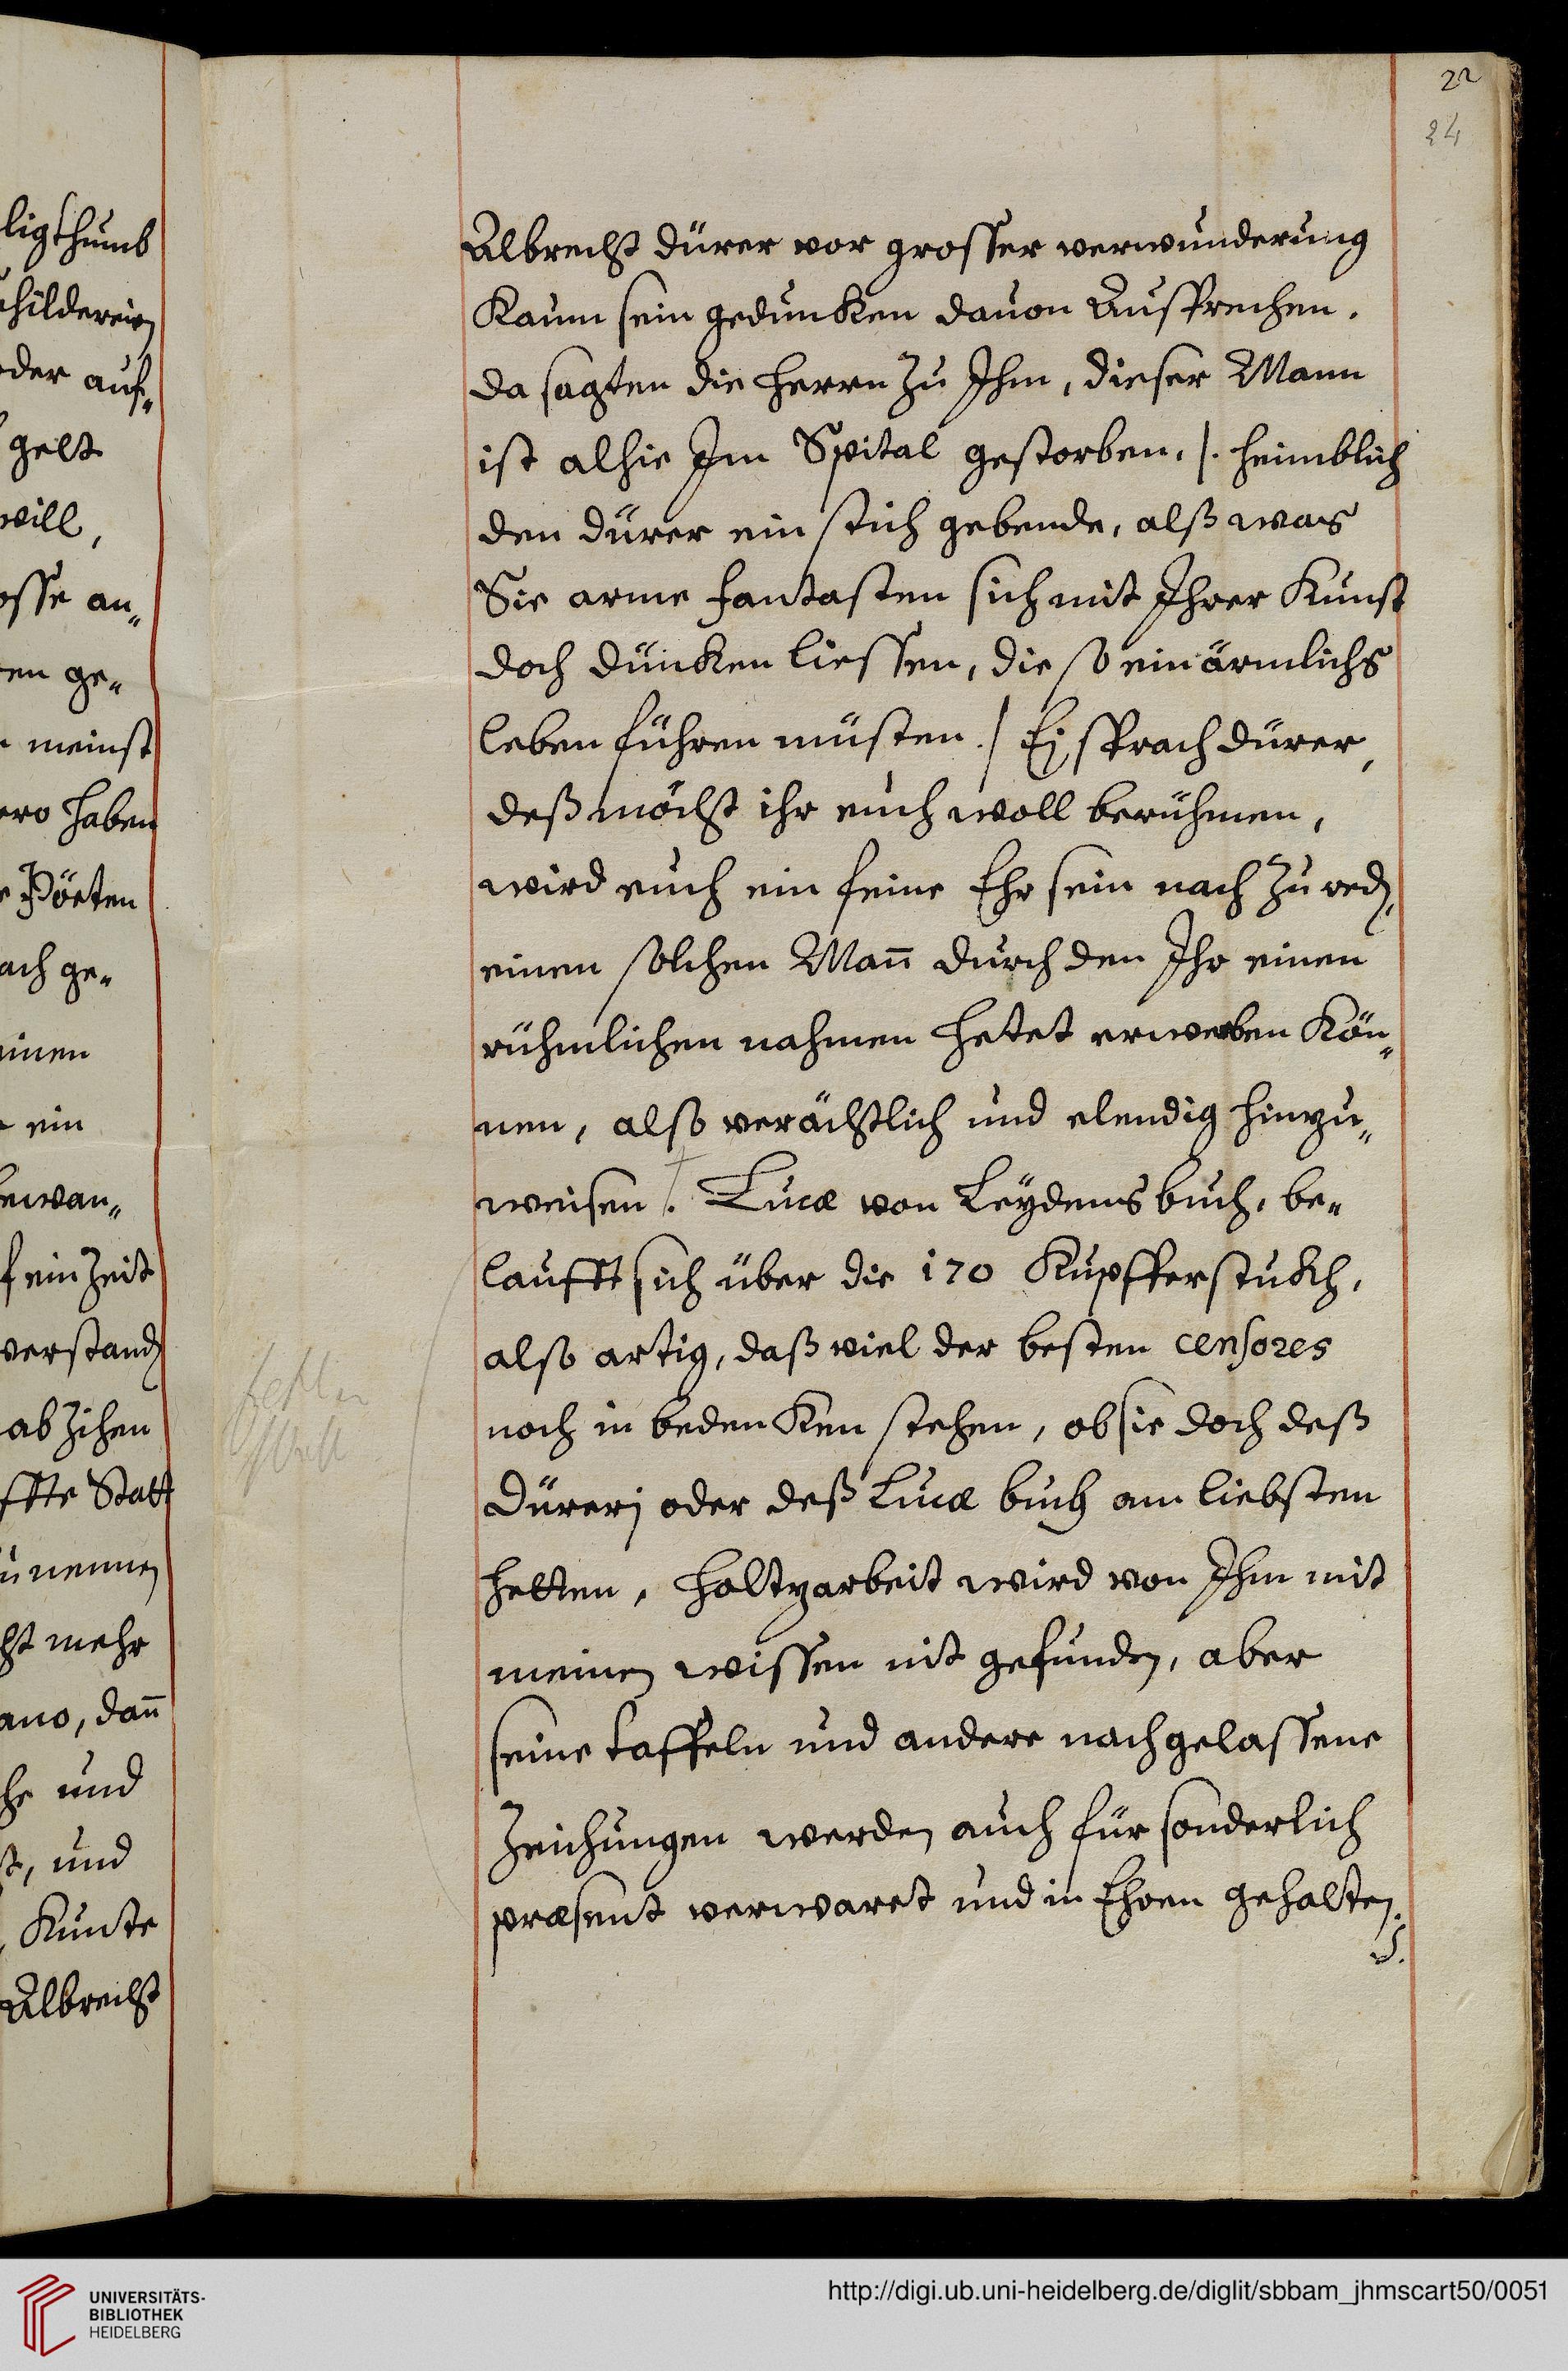 ligthumb
childereien
oder auf„
gelt
will,
osse an„
en ge„
meinst
ero haben
Pörten
ach ge„
einen
ein
f ein Zeit
verstand
ab Zihen
ffte Statt
Zu nennen
cht mehr
ano, dan̄
he und
st, und
Kunte
Albrecht
22
24
Albrecht dürer vor grosser verwunderung
Kaum sein gedunken dauon Aussprechen.
da sagten die Herrn Zu Ihm, dieser Mann
ist alhie Im Spital gestorben. /. heimblich
den dürer ein stich gebende, alß was
Sie arme fantasten sich mit Ihrer Kunst
doch dünken liessen, die so ein ärmlichs
leben führen müsten ./ Ej sprach dürer,
deß möcht ihr euch woll berühmen,
wird euch ein feine Ehr sein nach Zu red,
einen solchen Man̄ durch den Ihr einen
rühmlichen nahmen hetet erwerben Kön„
nen, also verächtlich und elendig hinzu„
weisen /. Lucæ von Leydens buch, be„
laufft sich über die 170 Kupfferstukh,
also artig, daß viel der besten censores
noch in bedenken stehen, ob sie doch deß
Dürerj oder deß Lucæ buch am liebsten
hetten, Holtzarbeit wird von Ihm mit
meinen wissen nit gefunden, aber
seine taffeln und andere nachgelassene
Zeichungen werden auch für sonderlich
præsent verwaret und in Ehren gehalten.
S.
UNIVERSITÄTS-
BIBLIOTHEK
HEIDELBERG
http://digi.ub.uni-heidelberg.de/diglit/sbbam_jhmscart50/0051